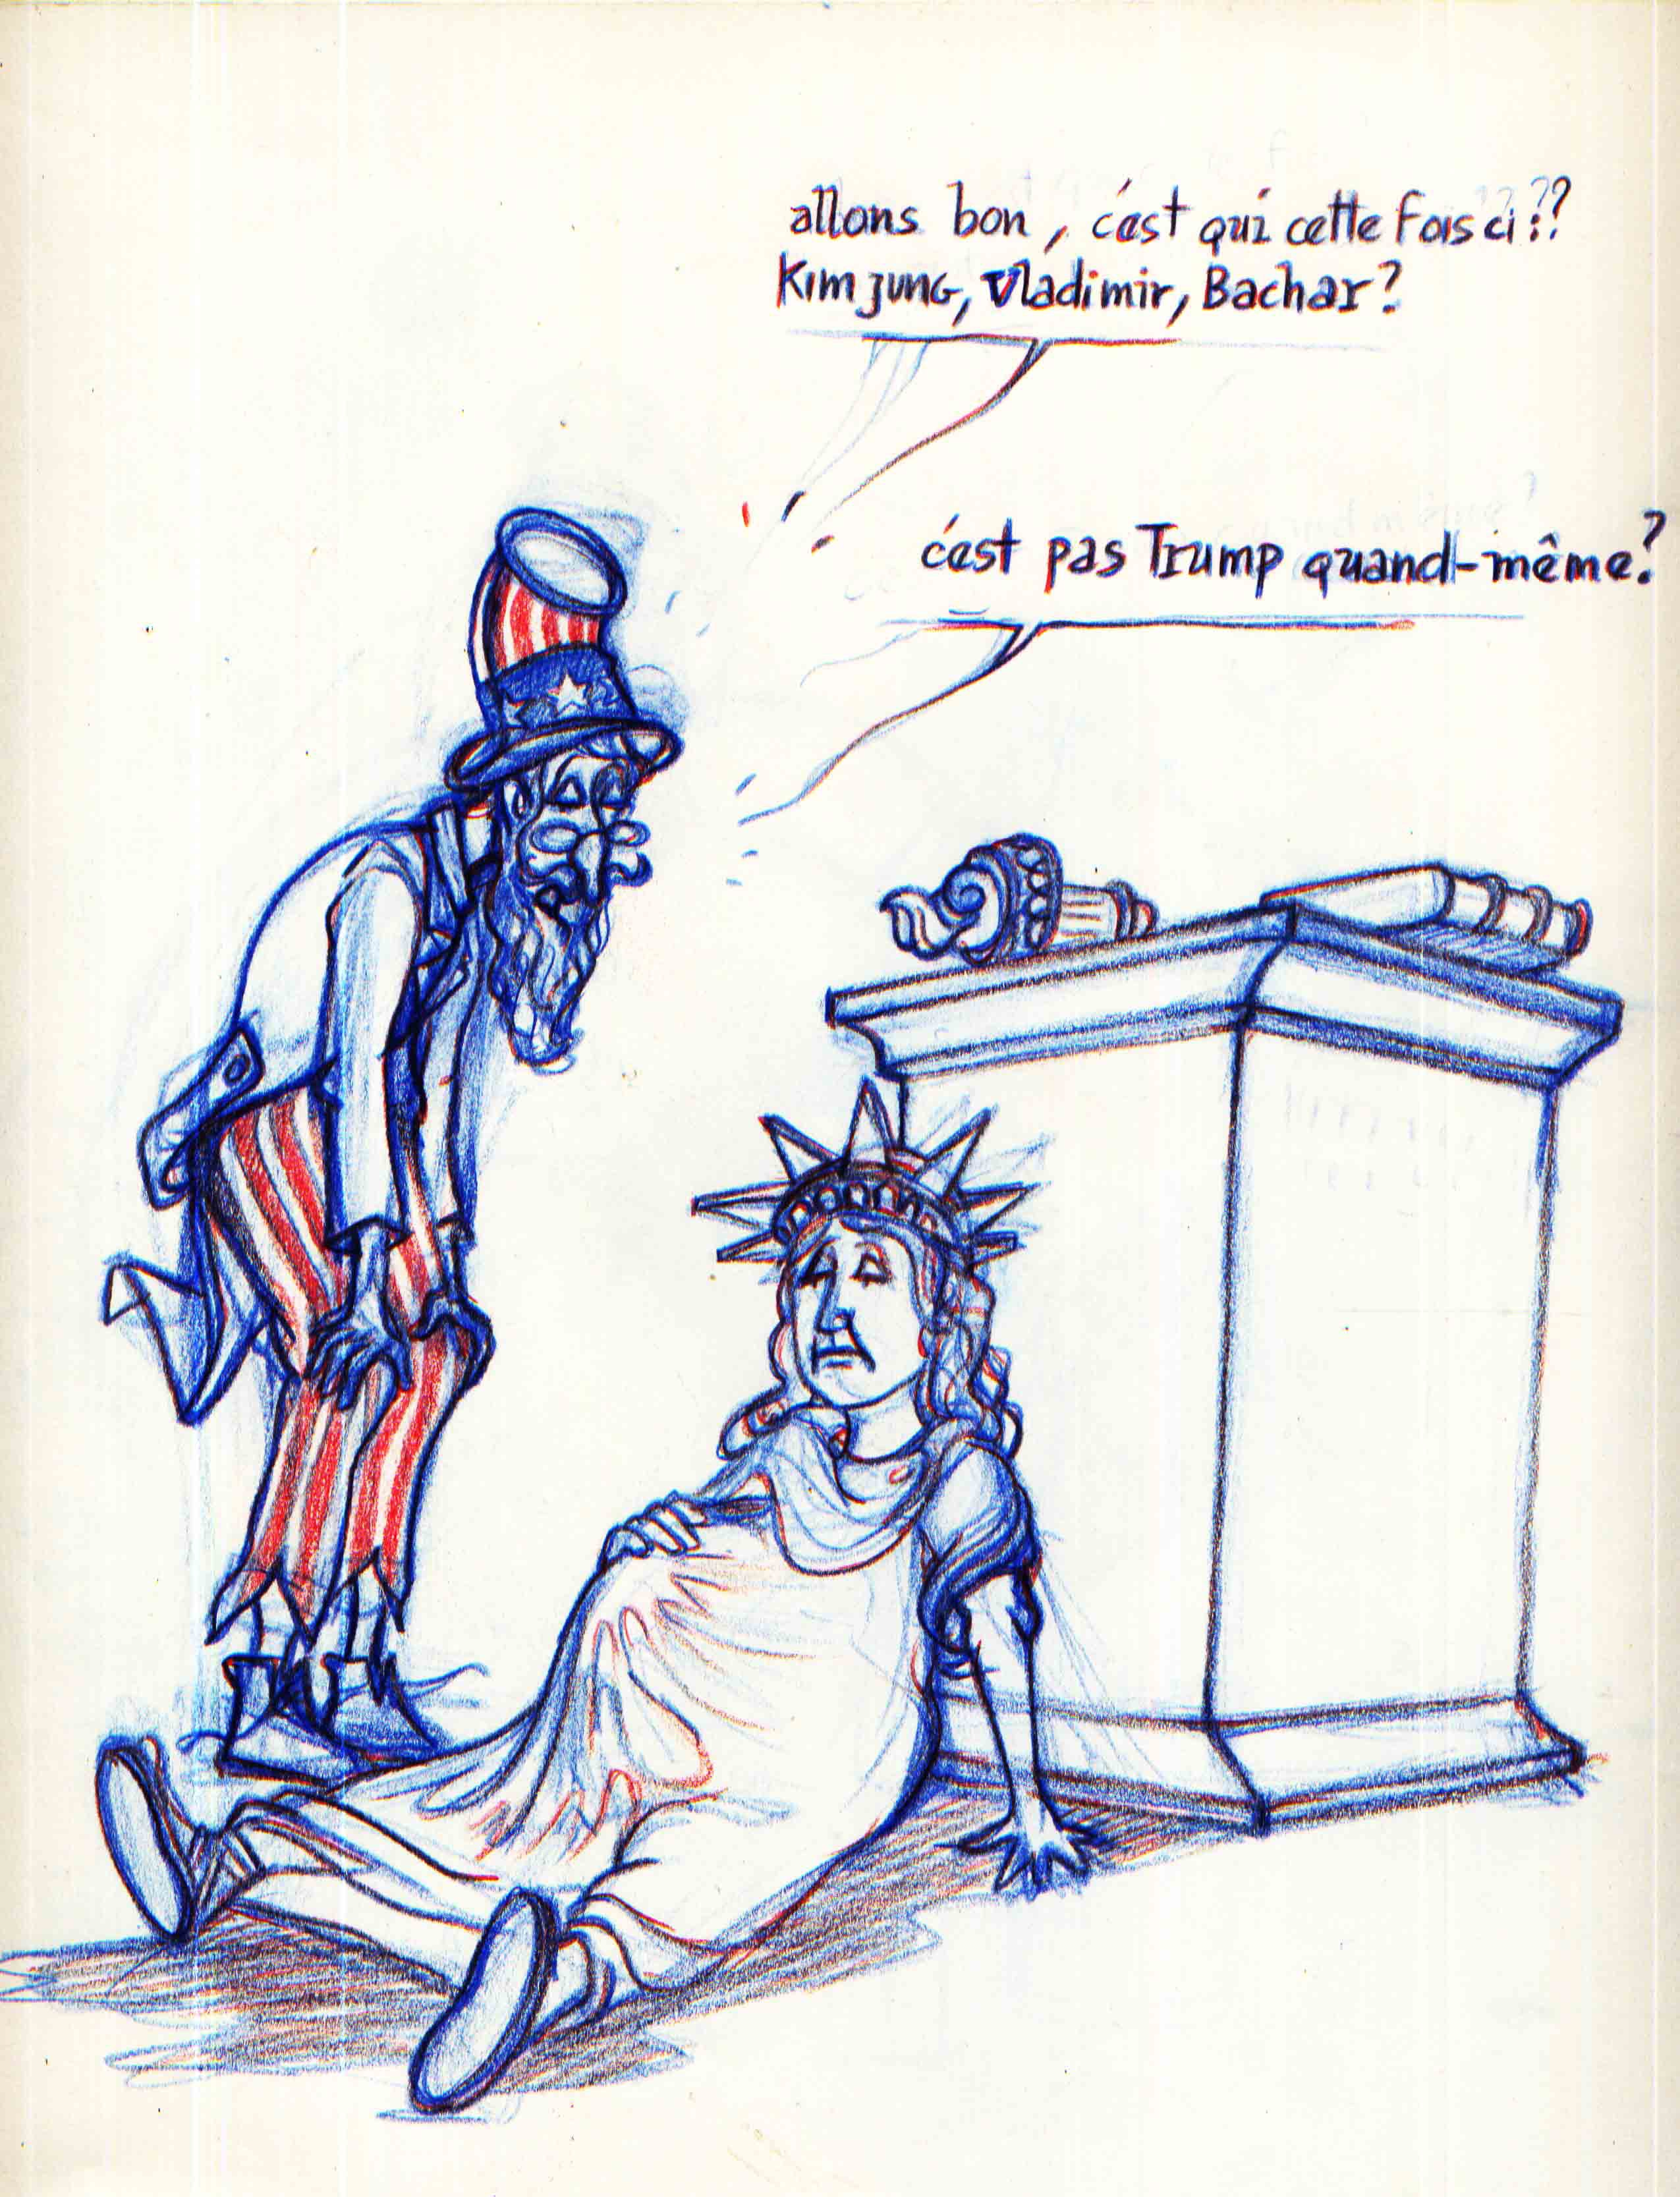 allons bon, c'est qui cette fois ci??
Kim jung, Vladimir, Bachar?
c'est pas Trump quand-même?